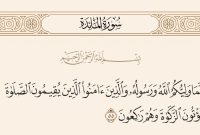 سُورَةُ المَائِدَةِ
بِسْمِ اللَّهِ الرَّحْمَٰنِ الرَّحِيمِ
وَلِيُّكُمُ اللَّهُ وَرَسُولُهُ وَالَّذِينَ ءَامَنُوا الَّذِينَ يُقِيمُونَ الصَّلَوٰةَ
الزَّكَوٰةَ وَهُمْ رَٰكِعُونَ ٥٥